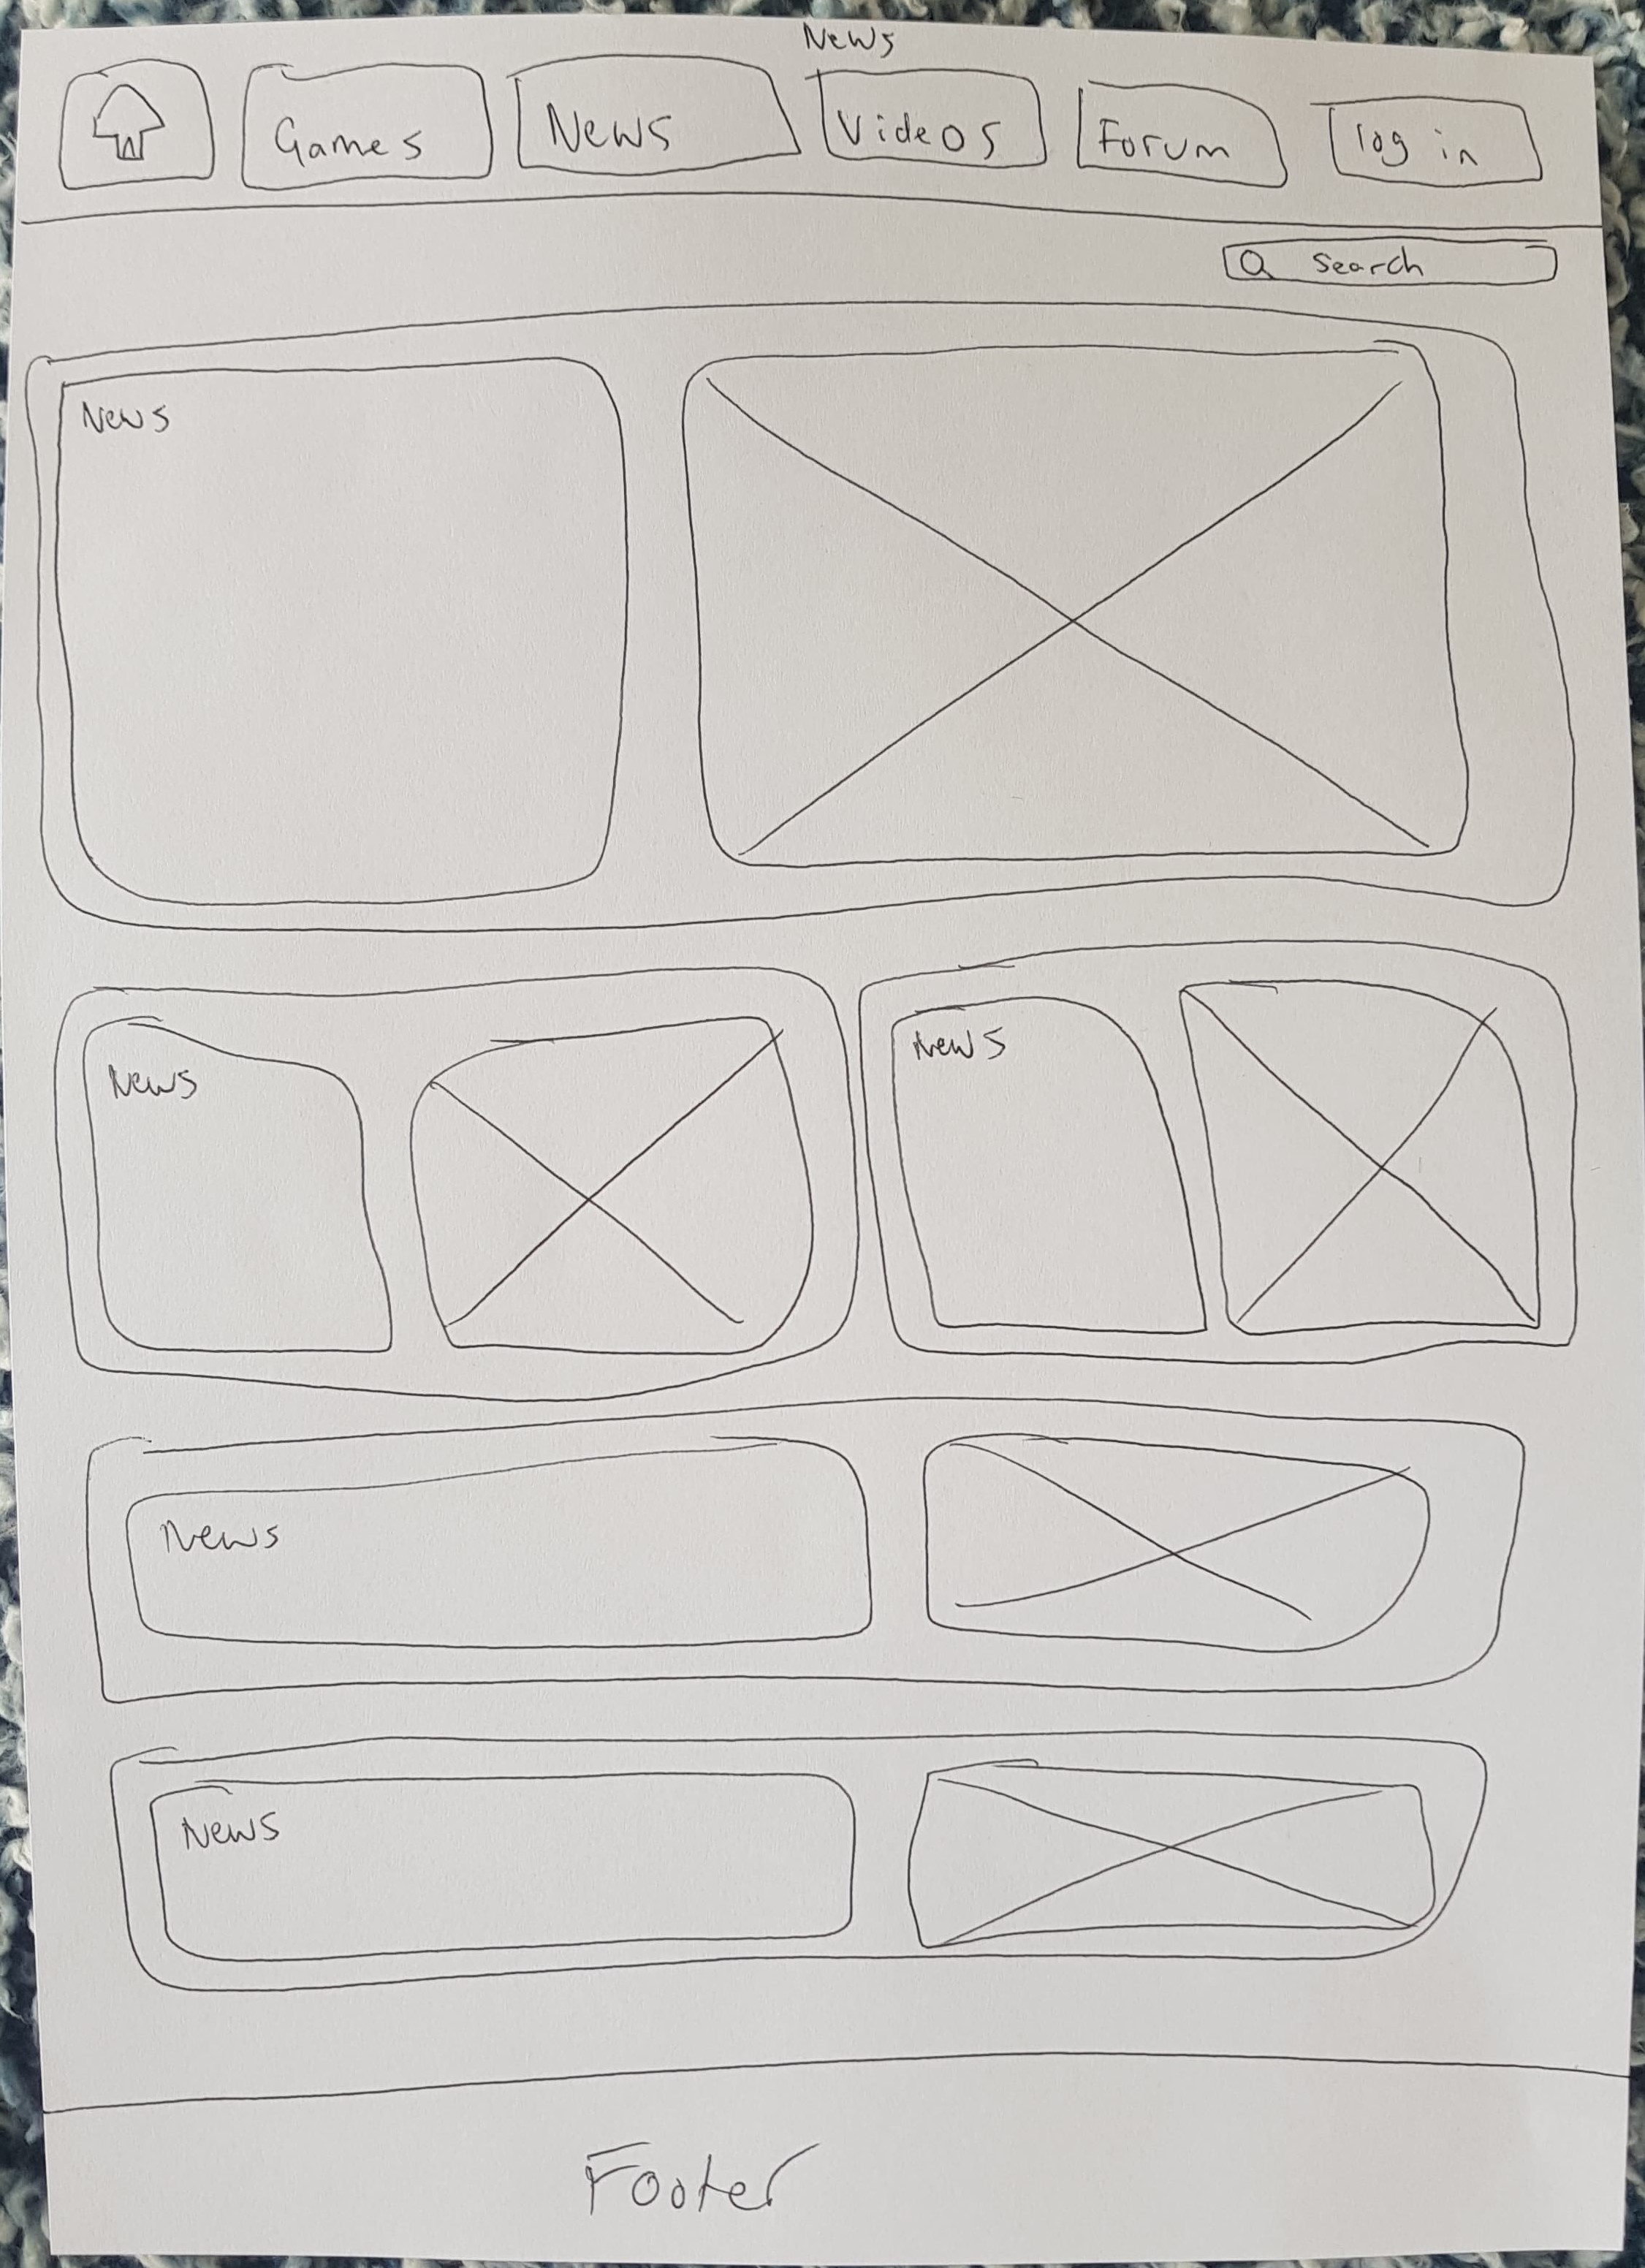 News
Games News Videos Forum log in
Search
News
News News
News
News
Footer